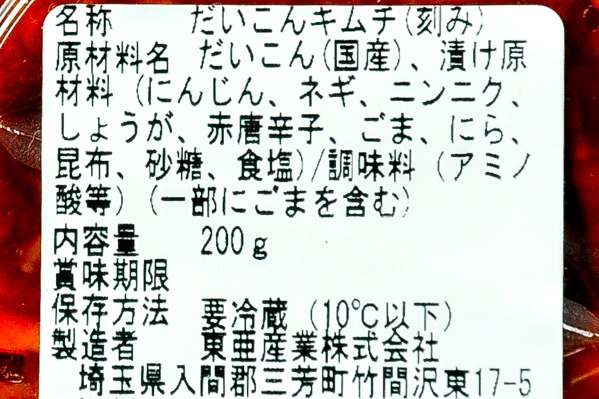 名称　だいこんキムチ(刻み)
原材料名　だいこん(国産)、漬け原
材料（にんじん、ネギ、ニンニク、
しょうが、赤唐辛子、ごま、にら、
昆布、砂糖、食塩)/調味料（アミノ
酸等）（一部にごまを含む）
内容量　200g
賞味期限
保存方法　要冷蔵（10℃以下）
製造者　東亜産業株式会社
埼玉県入間郡三芳町竹間沢東17-5